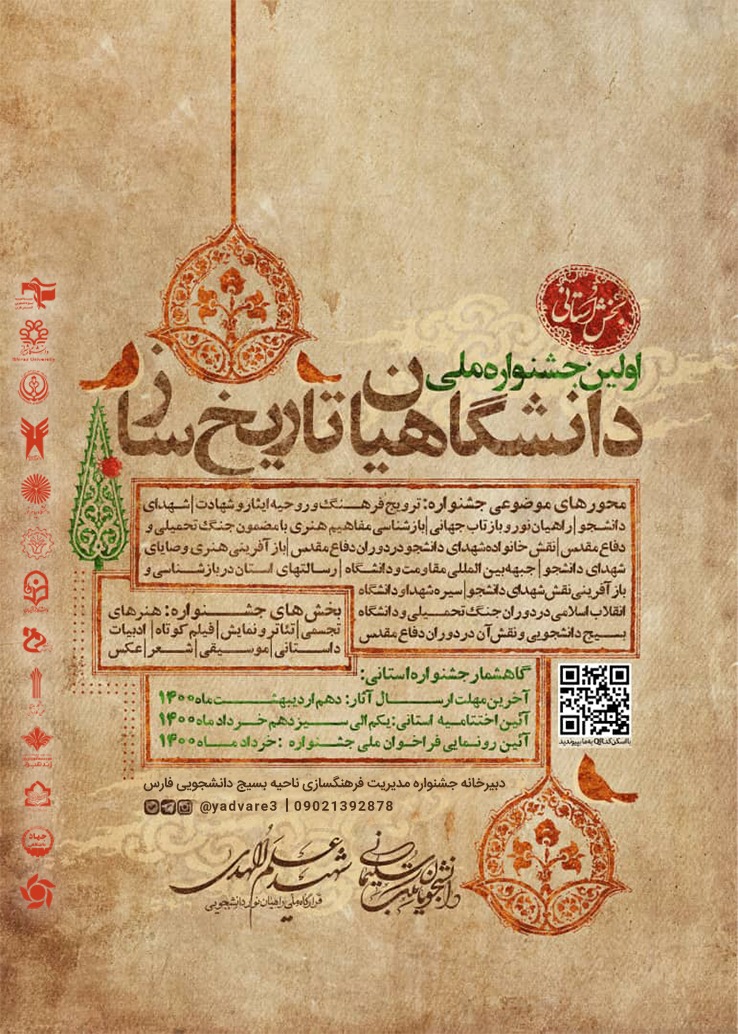 بخش استانی
اولین جشنواره ملی
دانشگاهیان تاریخ ساز
محورهای موضوعی جشنواره: ترویج فرهنگ و روحیه ایثار و شهادت | شهدای
دانشجو | راهیان نور و بازتاب جهانی | بازشناسی مفاهیم هنری با مضمون جنگ تحمیلی و
دفاع مقدس | نقش خانواده شهدای دانشجو در دوران دفاع مقدس | بازآفرینی هنری وصایای
شهدای دانشجو | جبهه بین المللی مقاومت و دانشگاه | رسالتهای استان در بازشناسی و
بازآفرینی نقش شهدای دانشجو | سیره شهدا و دانشگاه
انقلاب اسلامی در دوران جنگ تحمیلی و دانشگاه
بسیج دانشجویی و نقش آن در دوران دفاع مقدس
بخش های جشنواره: هنرهای
تجسمی | تئاتر و نمایش | فیلم کوتاه | ادبیات
داستانی | موسیقی | شعر | عکس
گاهشمار جشنواره استانی:
آخرین مهلت ارسال آثار: دهم اردیبهشت ماه ۱۴۰۰
آئین اختتامیه استانی: یکم الی سیزدهم خرداد ماه ۱۴۰۰
آئین رونمایی فراخوان ملی جشنواره : خرداد ماه ۱۴۰۰
با اسکن کد QR به ما بپیوندید
دبیرخانه جشنواره مدیریت فرهنگسازی ناحیه بسیج دانشجویی فارس
@yadvare3 | 09021392878
دانشجویان مکتب سلیمانی
شهید علم الهدی
قرارگاه ملی راهیان نور دانشجویی
Shiraz University
جهاد